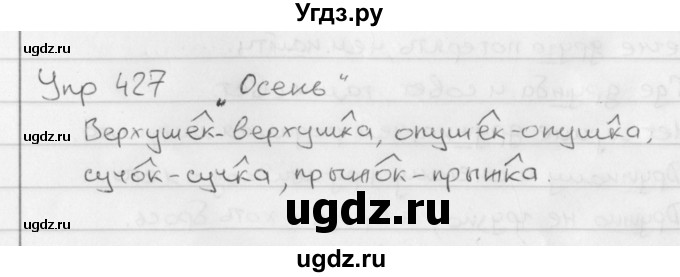 Угдз.ру
ugdz.ru ugdz.ru
Упр 427 „Осень"
ugdz.ru ugdz.ru
Верхушек-верхушка, опушек-опушка,
сучок-сучка, прыжок-прыжка.
ugdz.ru ugdz.ru
ugdz.ru
ugdz.ru